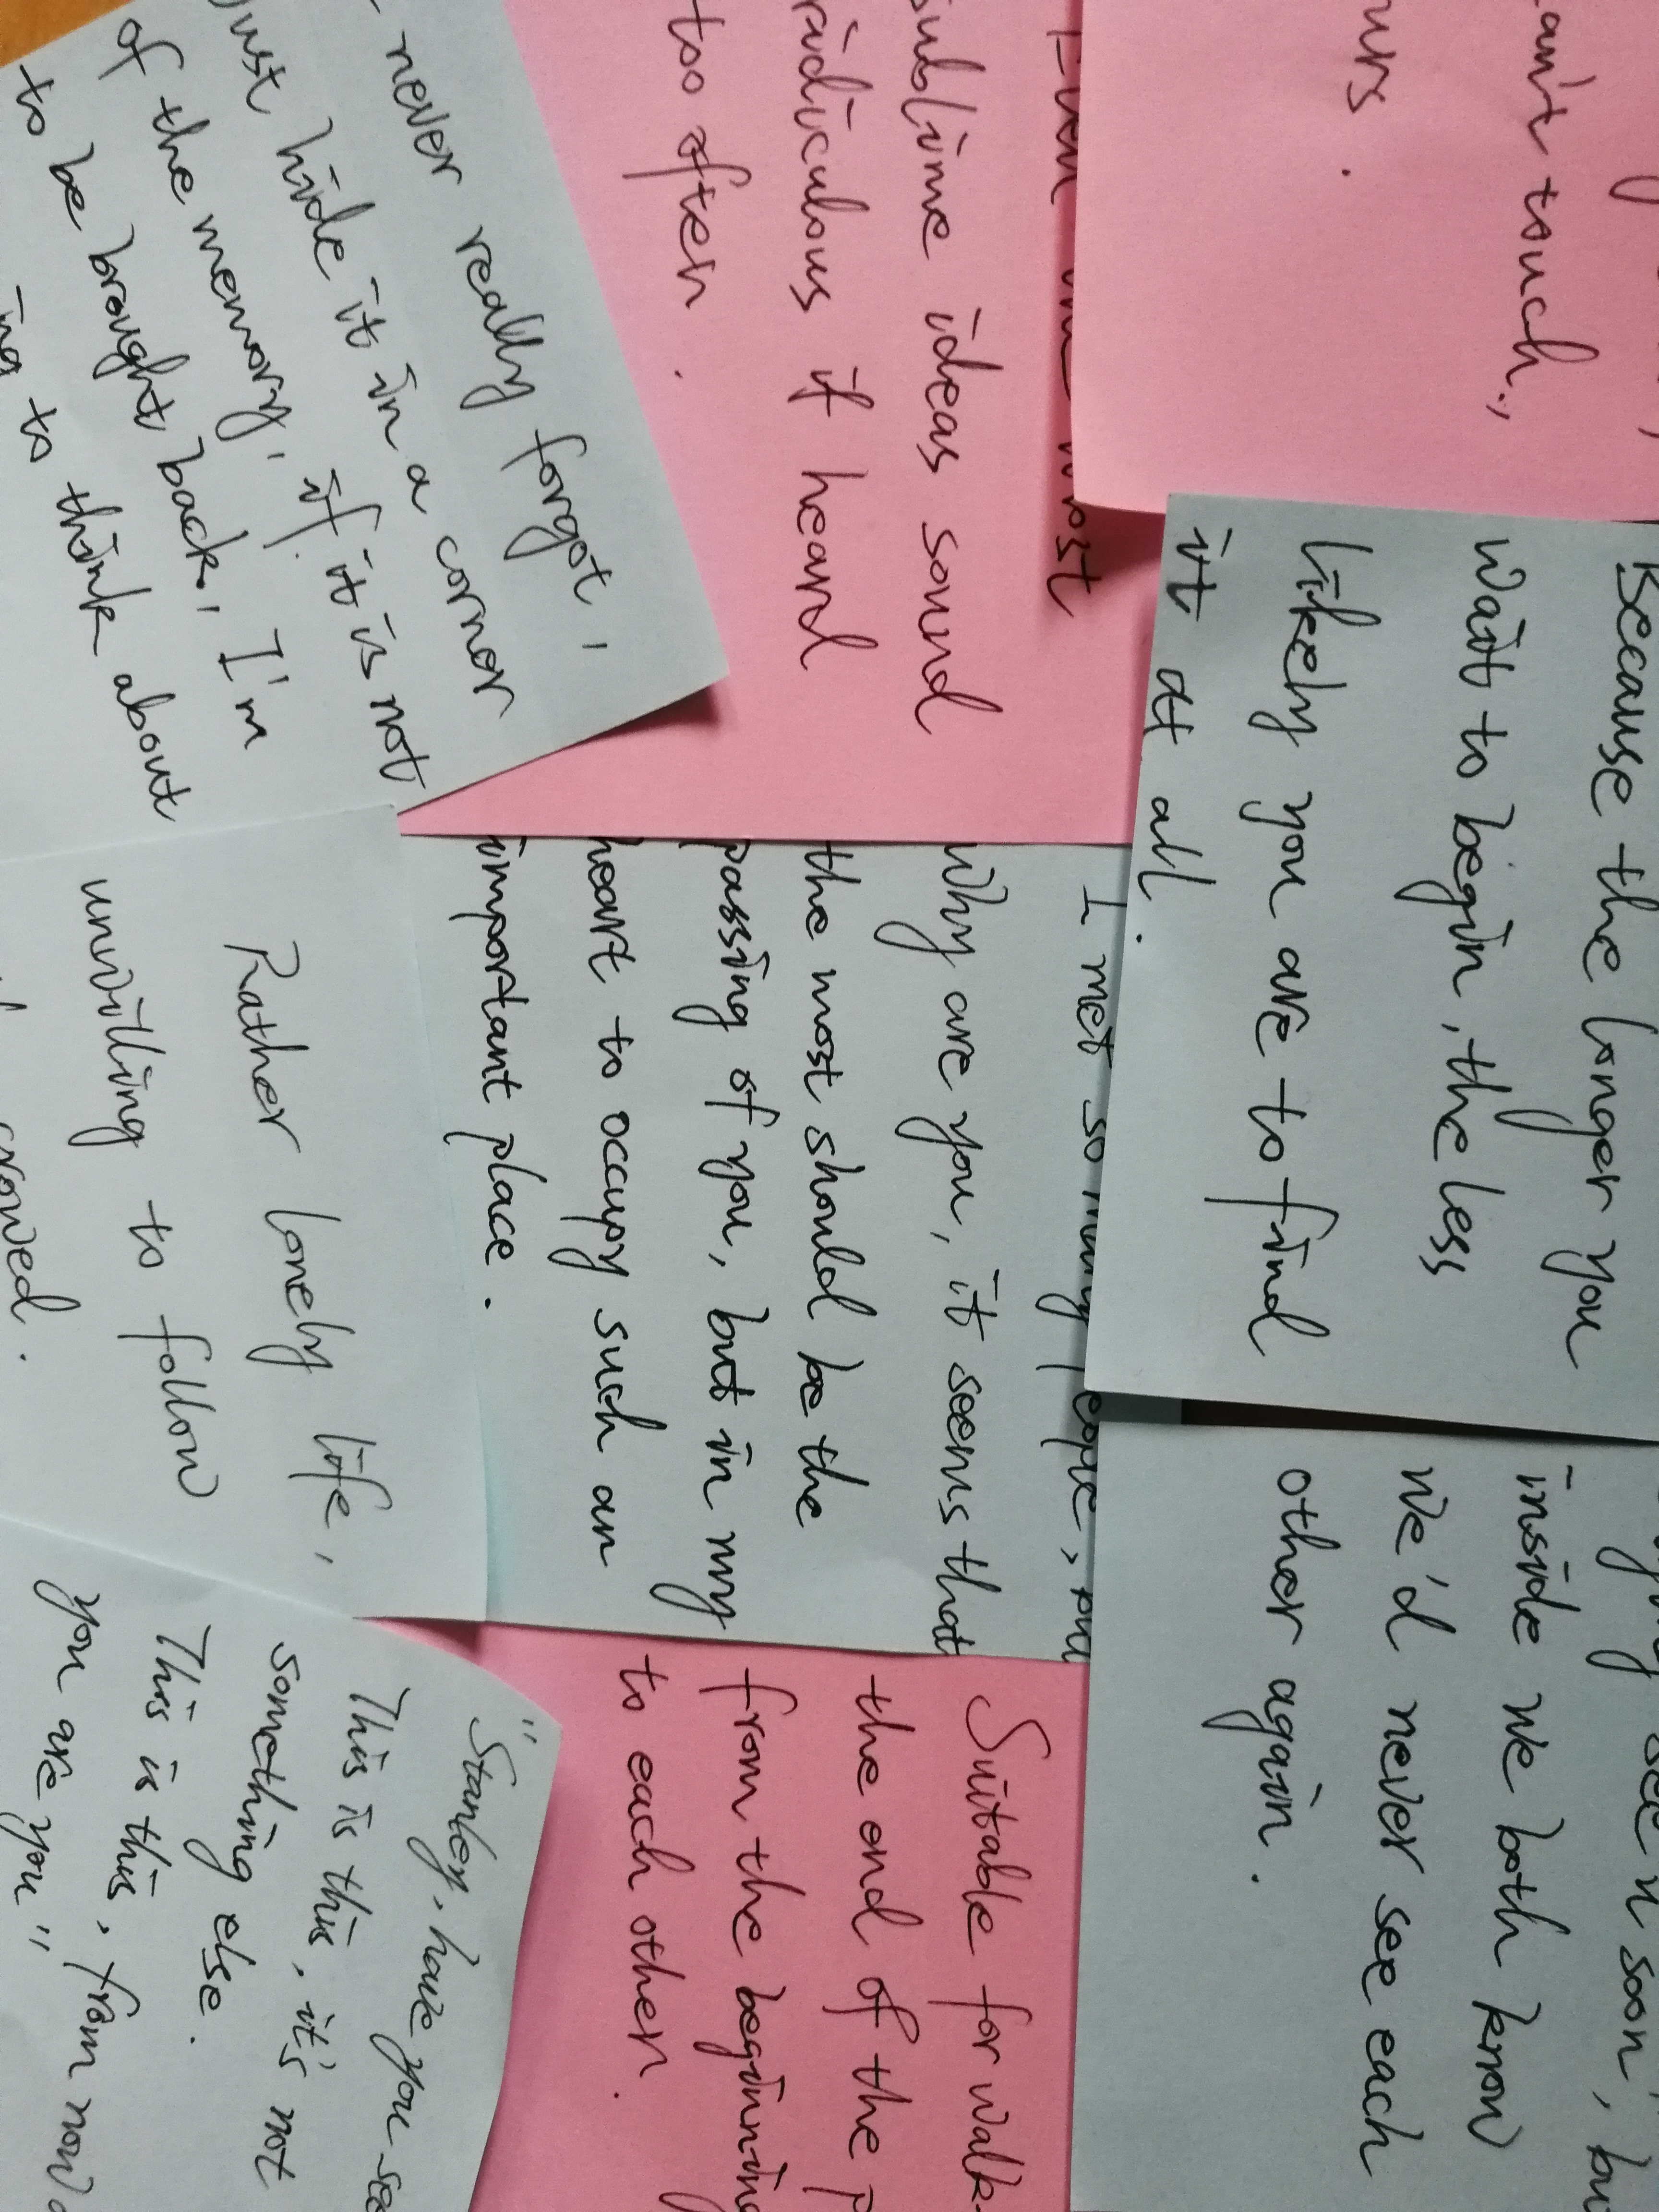 an't touch,
urs.
Even the most
sublime ideas sound
ridiculous if heard
too often.
never really forgot,
Just hide it in a corner
of the memory, if it is not
to be brought back, I'm
ing to think about
Because the longer you
wait to begin, the less
likely you are to find
it at all.
I met so many people,
why are you, it seems that
the most should be the
passing of you, but in my
heart to occupy such an
important place.
Rather lonely life,
unwilling to follow
crowed.
see n soon', bu
inside we both know
We'd never see each
other again.
Suitable for walk-
the end of the p
from the beginning
to each other.
"Stanley, have you see
This is this, it's not
something else.
This is this, from now o
you are you"